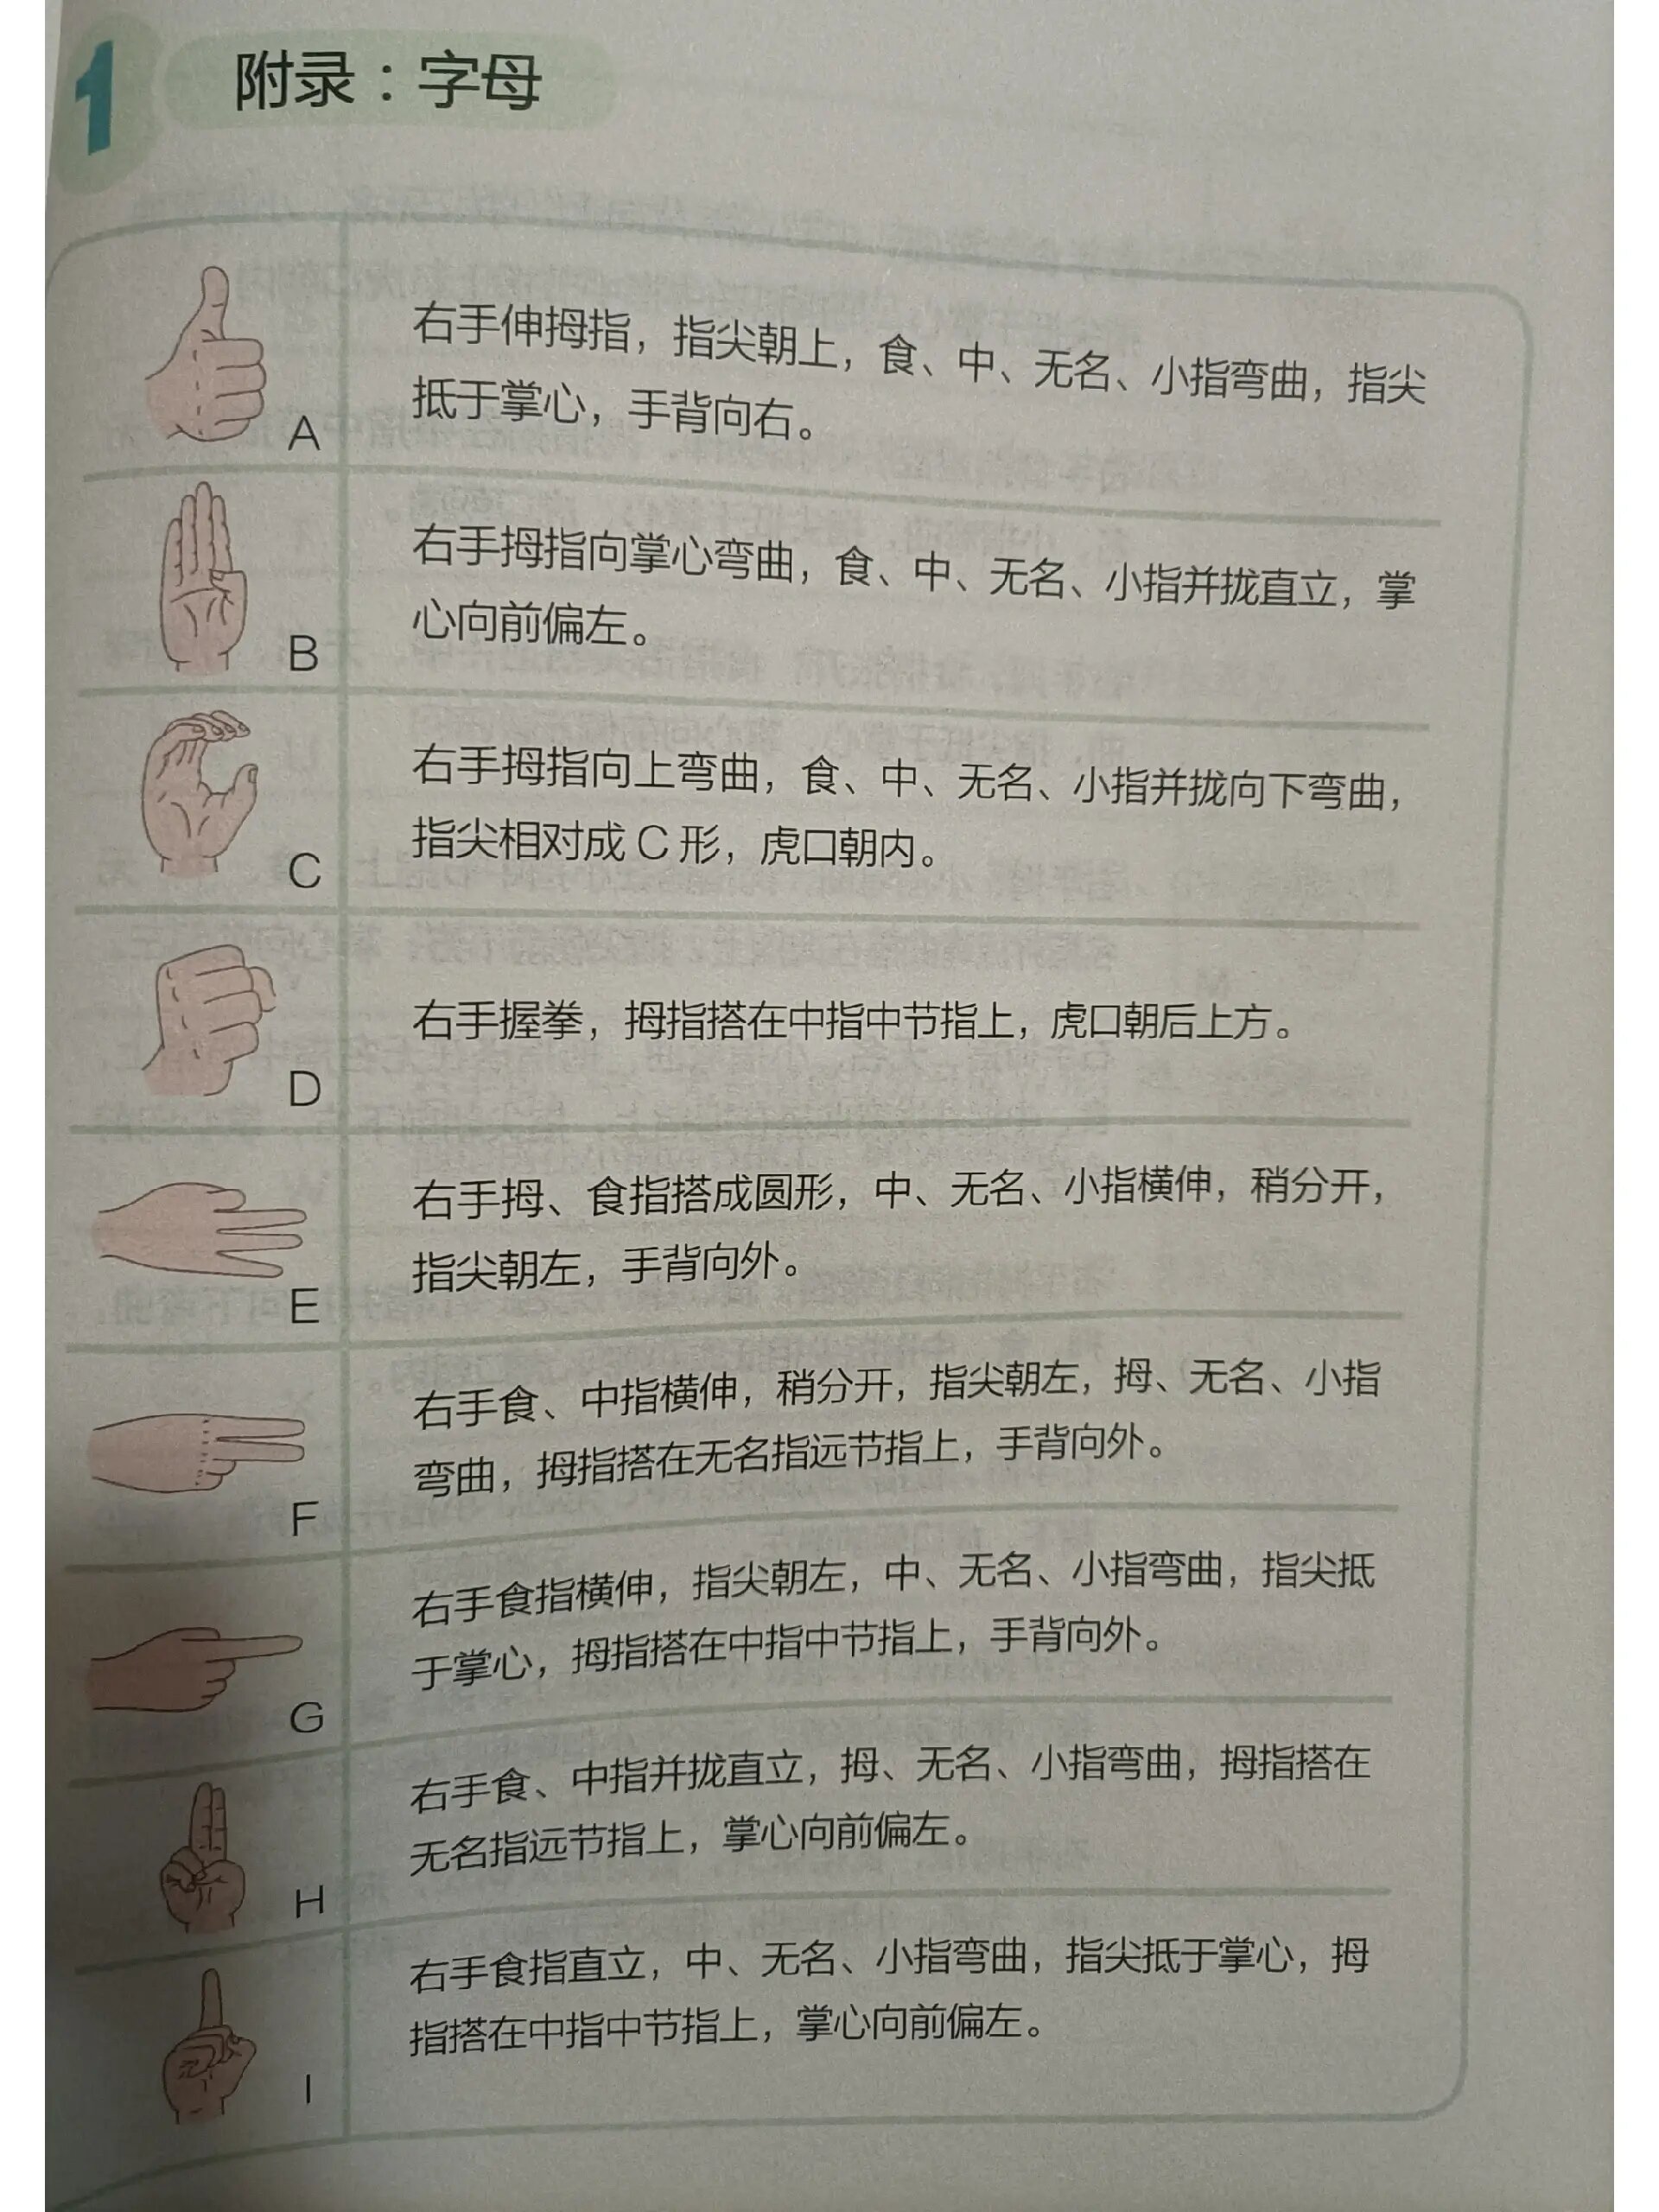 1 附录：字母
右手伸拇指，指尖朝上，食、中、无名、小指弯曲，指尖
抵于掌心，手背向右。
A
右手拇指向掌心弯曲，食、中、无名、小指并拢直立，掌
心向前偏左。
B
右手拇指向上弯曲，食、中、无名、小指并拢向下弯曲，
指尖相对成 C 形，虎口朝内。
C
右手握拳，拇指搭在中指中节指上，虎口朝后上方。
D
右手拇、食指搭成圆形，中、无名、小指横伸，稍分开，
指尖朝左，手背向外。
E
右手食、中指横伸，稍分开，指尖朝左，拇、无名、小指
弯曲，拇指搭在无名指远节指上，手背向外。
F
右手食指横伸，指尖朝左，中、无名、小指弯曲，指尖抵
于掌心，拇指搭在中指中节指上，手背向外。
G
右手食、中指并拢直立，拇、无名、小指弯曲，拇指搭在
无名指远节指上，掌心向前偏左。
H
右手食指直立，中、无名、小指弯曲，指尖抵于掌心，拇
指搭在中指中节指上，掌心向前偏左。
I